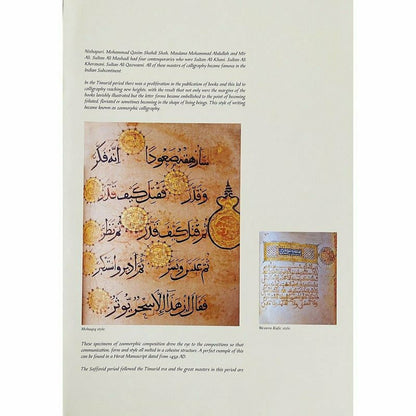 Nishapuri, Mohammad Qasim Shahdi Shah, Maulana Mohammad Abdullah and Mir
Ali. Sultan Ali Mashadi had four contemporaries who were Sultan Ali Khani, Sultan Ali
Khorasani, Sultan Ali Qazwaini. All of these masters of calligraphy became famous in the
Indian Subcontinent.
In the Timurid period there was a proliferation in the publication of books and this led to
calligraphy reaching new heights, with the result that not only were the margins of the
books lavishly illustrated but the letter forms became embellished to the point of becoming
foliated, floriated or sometimes becoming in the shape of living beings. This style of writing
became known as zoomorphic calligraphy.
سأرهقه صعودا انه فكر
وقدر فقتل كيف قدر
ثم قتل كيف قدر ثم نظر
ثم عبس وبسر ثم ادبر واستكبر
فقال ان هذا الا سحر يوثر
Muhaqiq style
Western Kufic style
These specimens of zoomorphic composition drew the eye to the compositions so that
communication, form and style all melted in a cohesive structure. A perfect example of this
can be found in a Herat Manuscript dated from 1432 AD.
The Saffavid period followed the Timurid era and the great masters in this period are